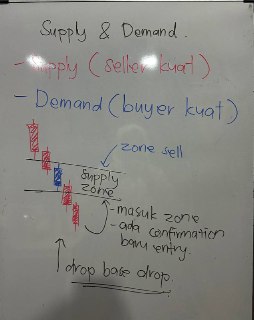 Supply & Demand.
- Supply (seller kuat)
- Demand (buyer kuat)
zone sell
Supply
zone
- masuk zone
- ada confirmation
baru entry.
drop base drop.